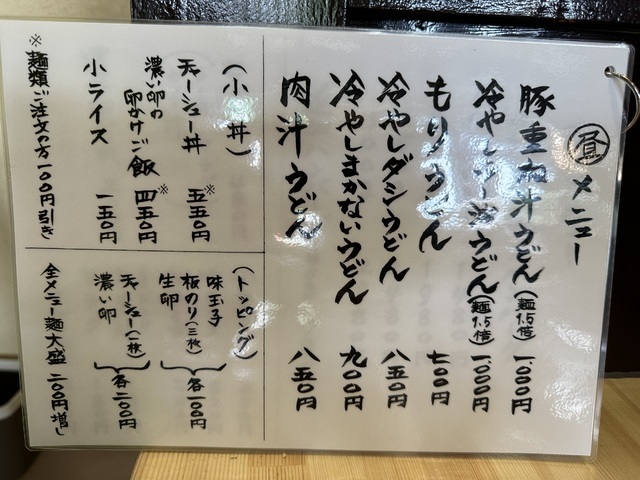 昼メニュー
豚重ね汁うどん(麺1.5倍) 1,000円
冷やし汁うどん(麺1.5倍) 1,000円
もりうどん 七〇〇円
冷やしダシうどん 八五〇円
冷やしまかないうどん 九〇〇円
肉汁うどん 八五〇円
(小丼)
チャーシュー丼 ※五五〇円
濃い卵の
卵かけご飯 ※四五〇円
小ライス 一五〇円
※麺類ご注文の方一〇〇円引き
(トッピング)
味玉子
板のり(三枚)
生卵
各一〇〇円
チャーシュー(一枚)
濃い卵
各二〇〇円
全メニュー麺大盛 二〇〇円増し